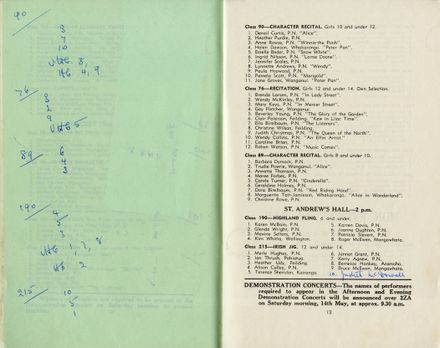 90
3
7
10
VHC 8,
HC 4, 9
76
3
2
9
VHC 5
89
6
4
3
190
4
5
3
VHC 1, 7, 8
HC 2
215
10
5
1
Class 90—CHARACTER RECITAL. Girls 10 and under 12.
1. Deneil Curtis, P.N. "Alice".
2. Heather Purdie, P.N.
3. Anne Rowse, P.N. "Winnie-the-Pooh".
4. Helen Dawson, Whakarongo. "Peter Pan".
5. Estelle Beder, P.N. "Snow White"
6. Ingrid Nilsson, P.N. "Lorna Doone"
7. Jennifer Scales, P.N.
8. Lynnette Andrews, P.N. "Wendy".
9. Paula Hopwood, P.N.
10. Pamela Scott, P.N. "Marigold"
11. Jane Groves, Wanganui. "Peter Pan".
Class 76—RECITATION. Girls 12 and under 14. Own Selection.
1. Brenda Larsen, P.N. "In Lady Street".
2. Wendy McKinley, P.N.
3. Mary Keys, P.N. "In Mercer Street".
4. Gay Fletcher, P.N.
5. Beverley Young, P.N. "The Glory of the Garden".
6. Clair Paterson, Feilding. "Kew in Lilac Time"
7. Ella Birelbaum, P.N. "The Listeners".
8. Christine Wilson, Feilding.
9. Judith Christmas, P.N. "The Queen of the North".
10. Wendy Collins, P.N. "An Elfin Artist"
11. Caroline Brian, P.N.
12. Robyn Watson, P.N. "Music Comes".
Class 89—CHARACTER RECITAL. Girls 8 and under 10.
1. Barbara Dymock, P.N.
2. Trudie Powrie, Wanganui. "Alice".
3. Annette Thomson, P.N.
4. Maree Forbes, P.N.
5. Carole Turner, P.N. "Cinderella".
6. Geraldine Holmes, P.N.
7. Dora Birelbaum, P.N. "Red Riding Hood".
8. Marguerite Tait-Jamieson, Whakarongo. "Alice in Wonderland".
9. Christine Rowe, P.N.
ST. ANDREW'S HALL—2 p.m.
Class 190—HIGHLAND FLING. 6 and under.
1. Karen McBain, P.N.
2. Glenda Wright, P.N.
3. Maxine Sellens, P.N.
4. Kim White, Wellington.
5. Karren Davis, P.N.
6. Joanna Dughten, P.N.
7. Patricia Stevens, P.N.
8. Roger McEwen, Mangawhata.
Class 215—IRISH JIG. 12 and under 14.
1. Merle Hughes, P.N.
2. Ian Thrush, Pahiatua.
3. Heather Udy, Feilding.
4. Alison Calley, P.N.
5. Terence Sheridan, Kairanga.
6. Jannet Grant, P.N.
7. Kerry Agnew, P.N.
8. Berneice Hankey, Aramoho.
9. Bruce McEwen, Mangawhata.
10. Judith McDowell
DEMONSTRATION CONCERTS—The names of performers
required to appear in the Afternoon and Evening
Demonstration Concerts will be announced over 2ZA
on Saturday morning, 14th May, at approx. 9.30 a.m.
13